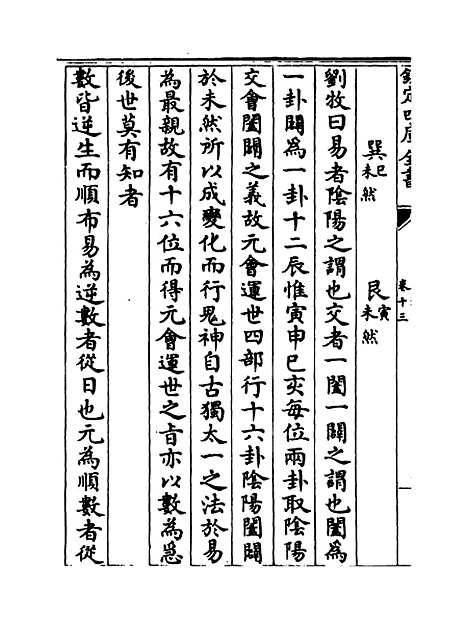 欽定四庫全書
卷十三
巽巳未然　艮寅未然
劉牧曰易者陰陽之謂也交者一闔一闢之謂也闔為
一卦闢為一卦十二辰惟寅申巳亥每位兩卦取陰陽
交會闔闢之義故元會運世四部行十六卦陰陽闔闢
於未然所以成變化而行鬼神自古獨太一之法於易
為最親故有十六位而得元會運世之旨亦以數為恩
後世莫有知者
數皆逆生而順布易為逆數者從日也元為順數者從